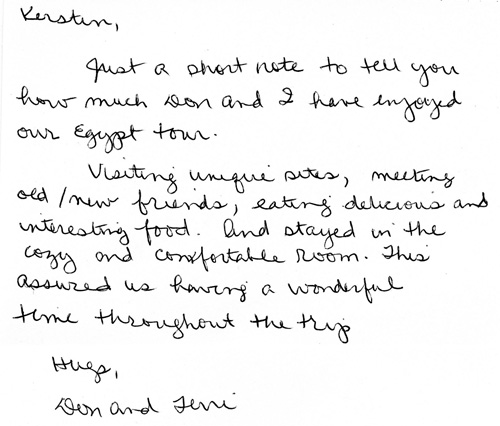 Kersten,
Just a short note to tell you
how much Don and I have enjoyed
our Egypt tour.
Visiting unique sites, meeting
old/new friends, eating delicious and
interesting food. And stayed in the
cozy and comfortable room. This
assured us having a wonderful
time throughout the trip
Hugs,
Don and Terri